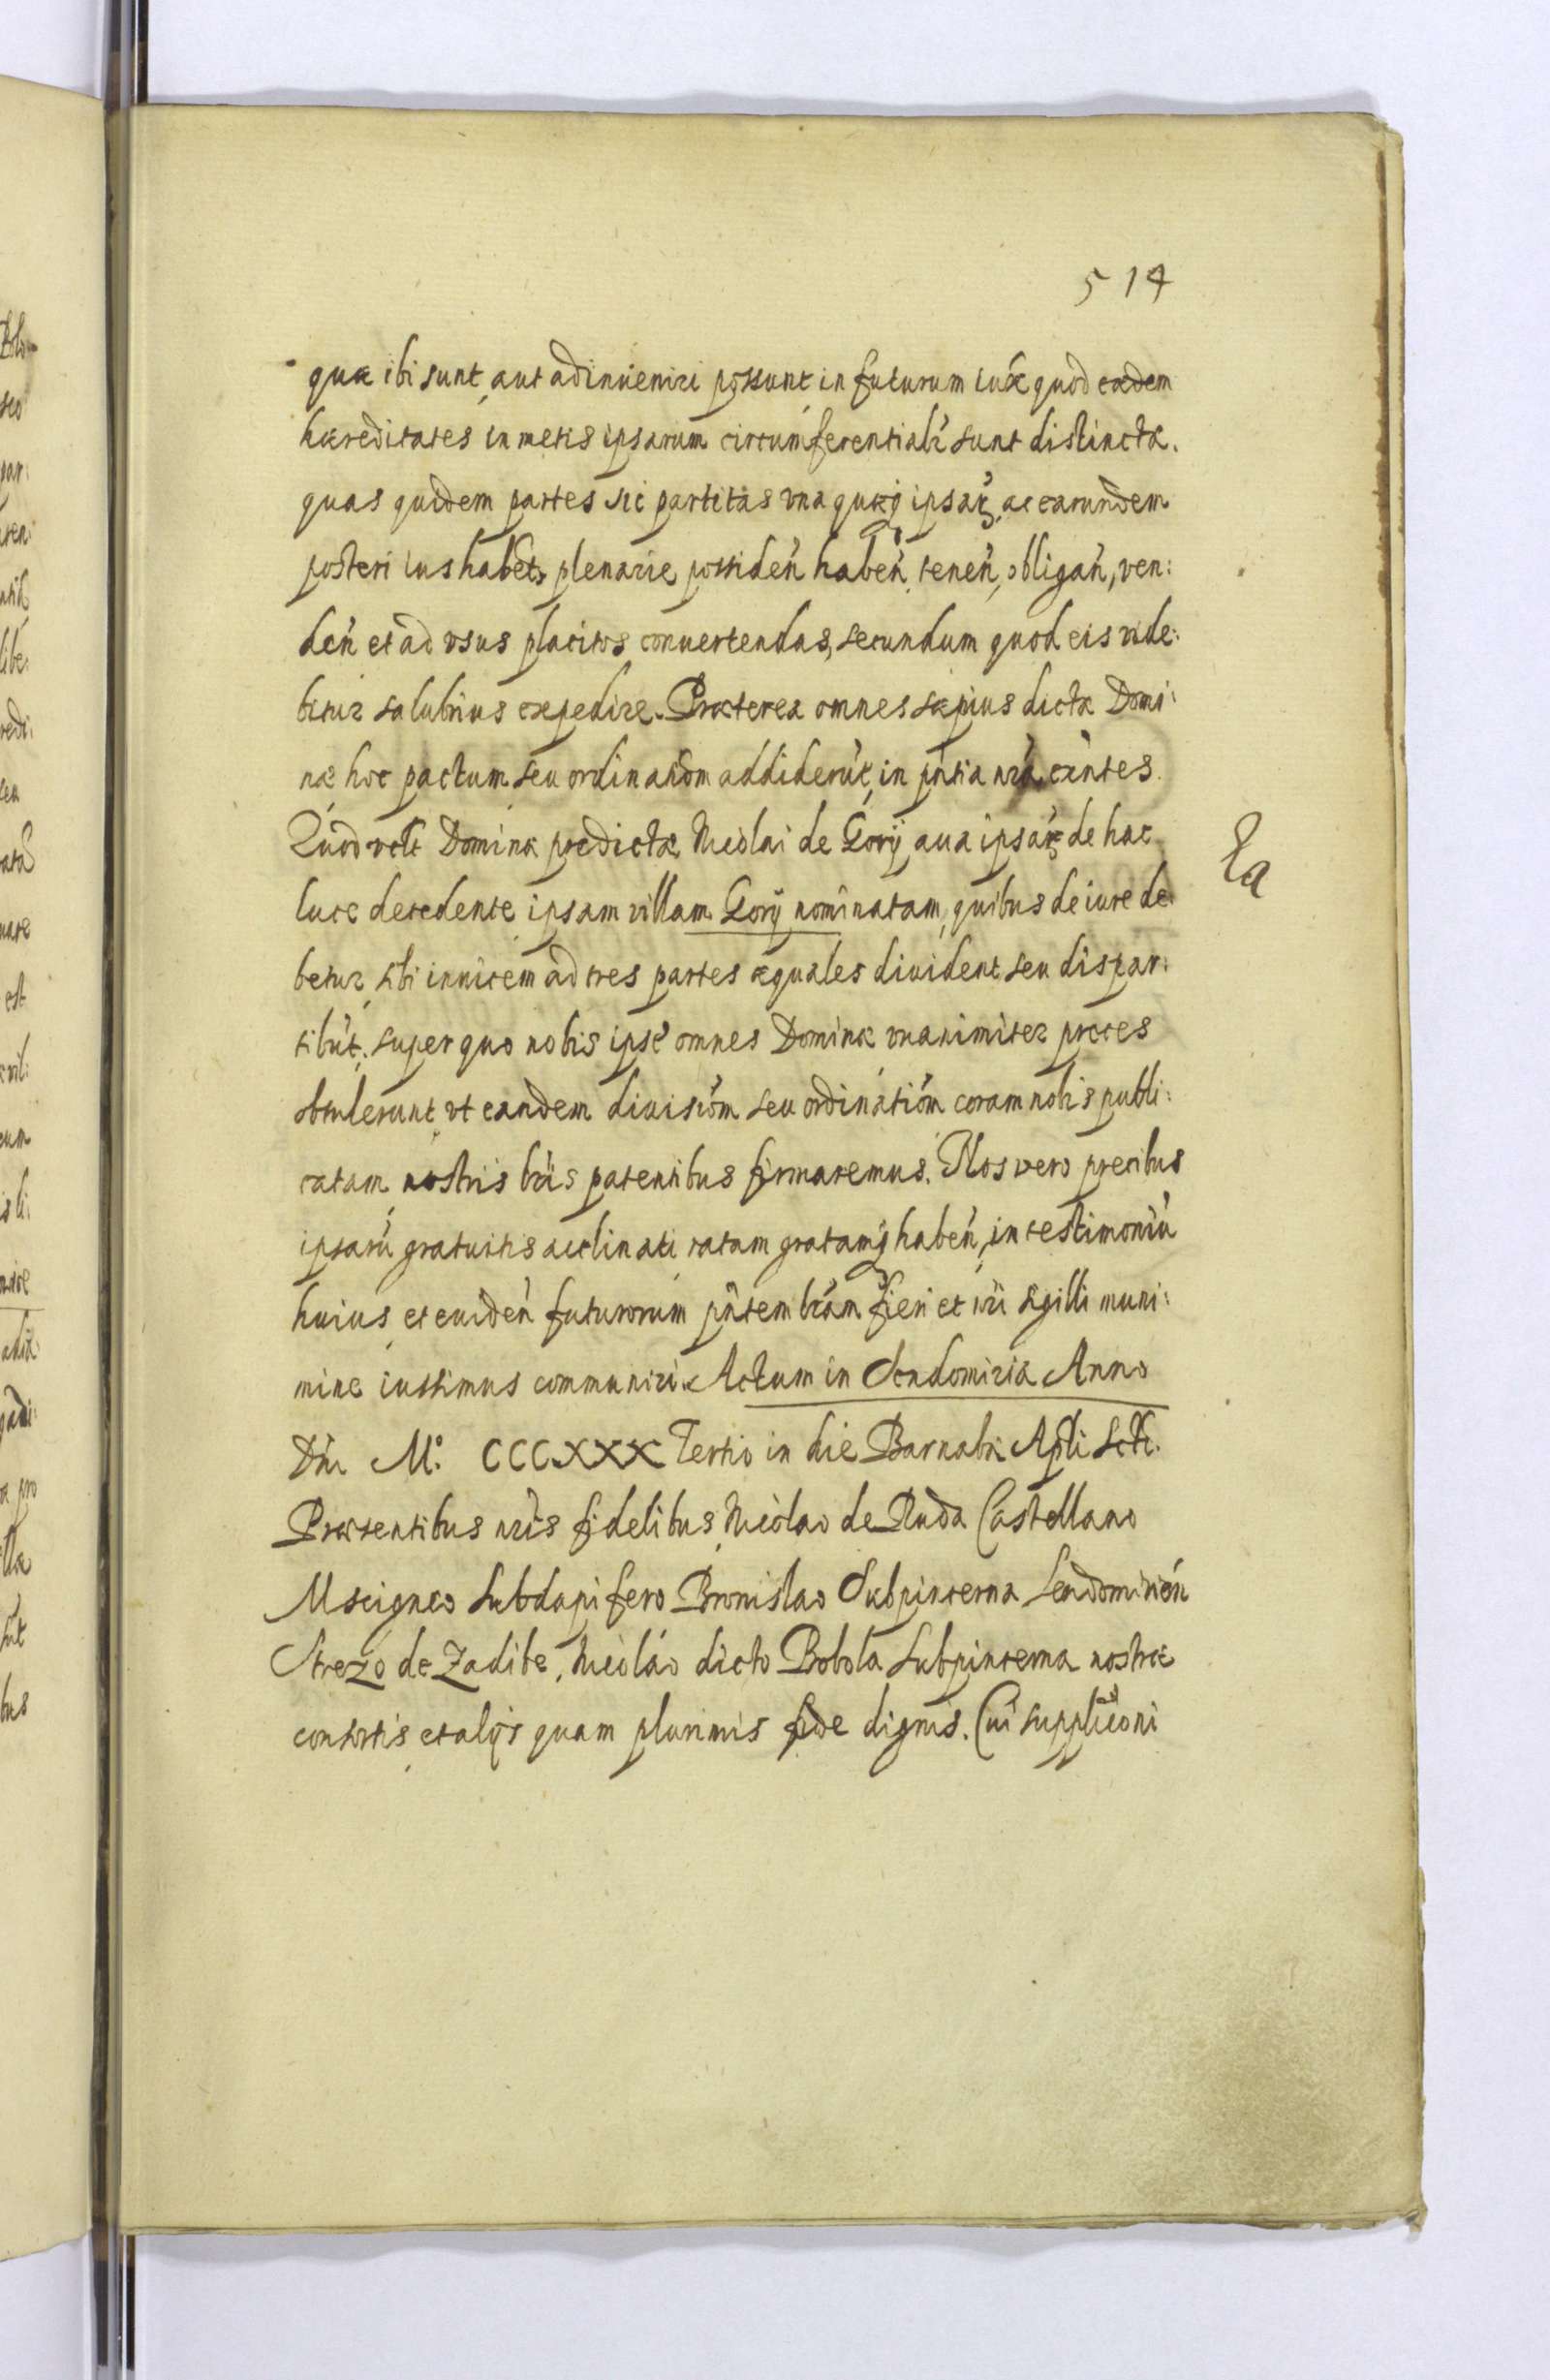 514
quæ ibi sunt, aut adinueniri possunt in futurum iux quod eædem
hæreditates in metis ipsarum circumferentialr sunt distinctæ.
quas quidem partes sic partitas vna quæq ipsar, ac earundem
posteri ius habet, plenarie possiden haben, tenen, obligan, ven:
den et ad vsus placitos conuertendas, secundum quod eis vide:
bitur salubrius expedire. Præterea omnes sæpius dictæ Domi:
næ hoc pactum seu ordinatiom addiderut, in pntia nra exntes.
Quod vclt Dominæ predictæ Nicolai de Gory aua ipsar de hac
luce decedente ipsam villam Gory nominatam, quibus de iure de:
betur, sibi inuicem ad tres partes æquales diuident seu dispar:
tibut, super quo nobis ipse omnes Dominæ vnanimiter preces
obtulerunt, vt eandem diuisiom seu ordinatiom coram nobis publi:
catam nostris lris patentibus firmaremus. Nos vero precibus
ipsaru gratuitis acclinati ratam gratamq haben, in testimoniu
huius et euiden futurorum pntem lram fieri et nri sigilli muni:
mine iussimus communiri. Actum in Sendomiria Anno
Dni M.° CCCXXX Tertio in die Barnabæ Apli Scti.
Præsentibus nris fidelibus, Nicolao de Ruda Castellano
Mscigneo Subdapifero Bronislao Subpincerna Sendomirien
Strezo de Zadibe, Nicolao dicto Bobola Subpincerna nostræ
consortis, et alijs quam plurimis fide dignis. Cui supplicõni